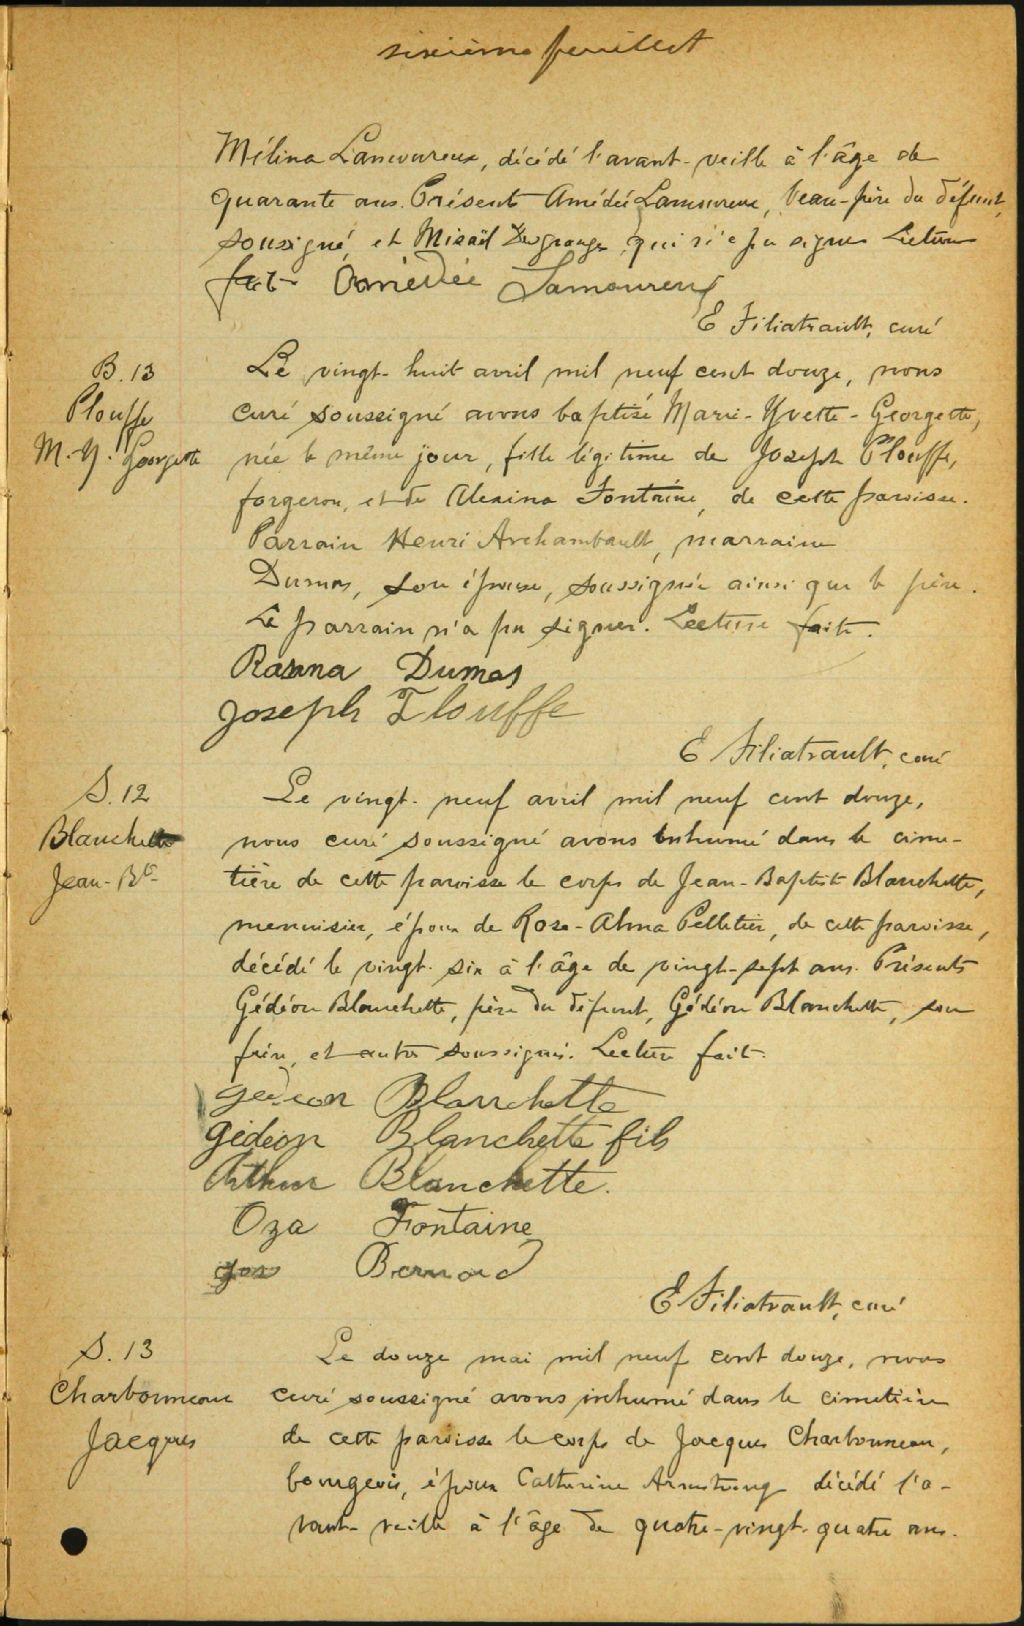 sixième feuillet
Mélina Lamoureux, décédé l'avant-veille à l'âge de
quarante ans. Présents Amédée Lamoureux, beau-père du défunt,
soussigné, et Misaël Desgranges qui n'a pu signer Lecture
faite Amédée Lamoureux
E Filiatrault, curé
B. 13
Plouffe
M. Y. Georgette
Le vingt-huit avril mil neuf cent douze, nous
curé soussigné avons baptisé Marie-Yvette-Georgette,
née le même jour, fille légitime de Joseph Plouffe,
forgeron, et de Alexina Fontaine, de cette paroisse.
Parrain Henri Archambault, marraine
Dumas, son épouse, soussignée ainsi que le père.
Le parrain n'a pu signer. Lecture faite.
Rosanna Dumas
Joseph Plouffe
E Filiatrault, curé
S. 12
Blanchette
Jean-Bte
Le vingt-neuf avril mil neuf cent douze,
nous curé soussigné avons inhumé dans le cime-
tière de cette paroisse le corps de Jean-Baptiste Blanchette,
menuisier, époux de Rose-Alma Pelletier, de cette paroisse,
décédé le vingt-six à l'âge de vingt-sept ans. Présents
Gédéon Blanchette, père du défunt, Gédéon Blanchette, son
frère, et autres soussignés. Lecture faite.
Gédéon Blanchette
Gédéon Blanchette fils
Arthur Blanchette.
Oza Fontaine
Jos Bernard
E Filiatrault, curé
S. 13
Charbonneau
Jacques
Le douze mai mil neuf cent douze, nous
curé soussigné avons inhumé dans le cimetière
de cette paroisse le corps de Jacques Charbonneau,
bourgeois, époux Catherine Armstrong décédé l'a-
vant-veille à l'âge de quatre-vingt-quatre ans.